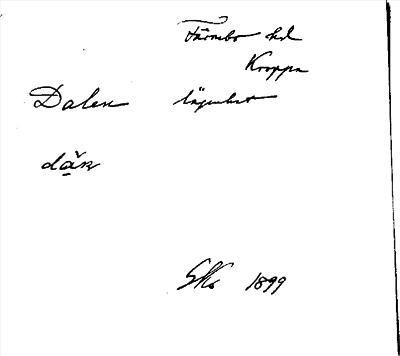 Färnebo hd
Kroppa
Dalen lägenhet
dạ̌n
GKs 1899